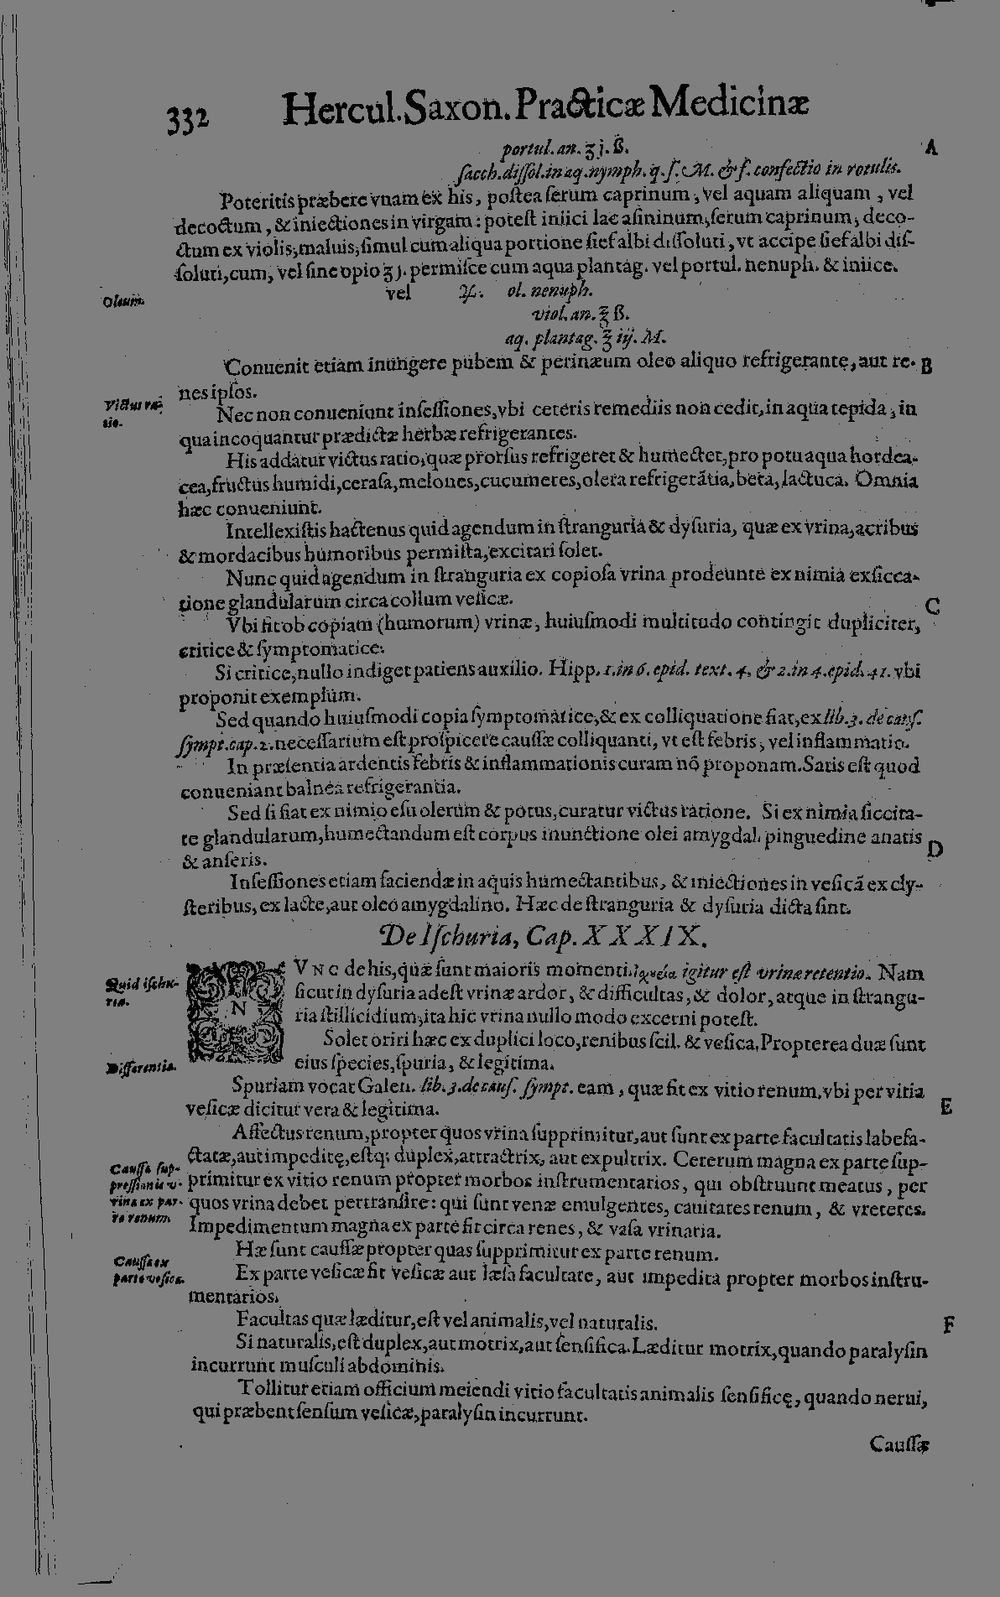 332 Hercul. Saxon. Practicæ Medicinæ
portul. an. ʒ j. ß.
A
ſacch. diſſol. in aq. nymph. q. ſ. M. & f. confectio in rotulis.
Poteritis præbere vnam ex his, poſtea ſerum caprinum, vel aquam aliquam, vel
decoctum, & iniectiones in virgam: poteſt iniici lac aſininum, ſerum caprinum, deco-
ctum ex violis, maluis, ſimul cum aliqua portione ſief albi diſſoluti, vt accipe ſief albi diſ-
ſoluti, cum, vel ſine opio ʒ j. permiſce cum aqua plantag. vel portul. nenuph. & iniice.
Oleum.
vel ℞. ol. nenuph.
viol. an. ℥ ß.
aq. plantag. ℥ iij. M.
Conuenit etiam inungere pubem & perinæum oleo aliquo refrigerante, aut re-
B
nes ipſos.
Victus ra-
tio.
Nec non conueniunt inſeſſiones, vbi ceteris remediis non cedit, in aqua tepida, in
qua incoquantur prædictæ herbæ refrigerantes.
His addatur victus ratio, quæ prorſus refrigeret & humectet, pro potu aqua hordea-
cea, fructus humidi, ceraſa, melones, cucumeres, olera refrigerātia, beta, lactuca. Omnia
hæc conueniunt.
Intellexiſtis hactenus quid agendum in ſtranguria & dyſuria, quæ ex vrina, acribus
& mordacibus humoribus permiſta, excitari ſolet.
Nunc quid agendum in ſtranguria ex copioſa vrina prodeunte ex nimia exſicca-
tione glandularum circa collum veſicæ.
C
Vbi fit ob copiam (humorum) vrinæ, huiuſmodi multitudo contingit dupliciter,
critice & ſymptomatice.
Si critice, nullo indiget patiens auxilio. Hipp. 1. in 6. epid. text. 4. & 2. in 4. epid. 41. vbi
proponit exemplum.
Sed quando huiuſmodi copia ſymptomatice, & ex colliquatione fiat, ex lib. 3. de cauſ.
ſympt. cap. 2. neceſſarium eſt proſpicere cauſſæ colliquanti, vt eſt febris, vel inflammatio.
In præſentia ardentis febris & inflammationis curam nō proponam. Satis eſt quod
conueniant balnea refrigerantia.
Sed ſi fiat ex nimio eſu olerum & potus, curatur victus ratione. Si ex nimia ſiccita-
te glandularum, humectandum eſt corpus inunctione olei amygdal. pinguedine anatis
D
& anſeris.
Inſeſſiones etiam faciendæ in aquis humectantibus, & iniectiones in veſicā ex cly-
ſteribus, ex lacte, aut oleo amygdalino. Hæc de ſtranguria & dyſuria dicta ſint.
De Iſchuria, Cap. XXXIX.
Quid iſchu-
ria.
NVNC de his, quæ ſunt maioris momenti. igitur eſt vrinæ retentio. Nam
ſicut in dyſuria adeſt vrinæ ardor, & difficultas, & dolor, atque in ſtrangu-
ria ſtillicidium, ita hic vrina nullo modo excerni poteſt.
Solet oriri hæc ex duplici loco, renibus ſcil. & veſica. Propterea duæ ſunt
Differentia.
eius ſpecies, ſpuria, & legitima.
Spuriam vocat Galen. lib. 3. de cauſ. ſympt. eam, quæ fit ex vitio renum, vbi per vitia
E
veſicæ dicitur vera & legitima.
Affectus renum, propter quos vrina ſupprimitur, aut ſunt ex parte facultatis labefa-
ctatæ, aut impeditę, eſtq; duplex, attractrix, aut expultrix. Ceterum magna ex parte ſup-
Cauſſa ſup-
preſſionis v-
rinæ ex par-
te renum.
primitur ex vitio renum propter morbos inſtrumentarios, qui obſtruunt meatus, per
quos vrina debet pertranſire: qui ſunt venæ emulgentes, cauitates renum, & vreteres.
Impedimentum magna ex parte fit circa renes, & vaſa vrinaria.
Hæ ſunt cauſſæ propter quas ſupprimitur ex parte renum.
Cauſſæ ex
parte veſicæ.
Ex parte veſicæ fit veſicæ aut læſa facultate, aut impedita propter morbos inſtru-
mentarios.
Facultas quæ læditur, eſt vel animalis, vel naturalis.
F
Si naturalis, eſt duplex, aut motrix, aut ſenſifica. Læditur motrix, quando paralyſin
incurrunt muſculi abdominis.
Tollitur etiam officium meiendi vitio facultatis animalis ſenſificę, quando nerui,
qui præbent ſenſum veſicæ, paralyſin incurrunt.
Cauſſæ